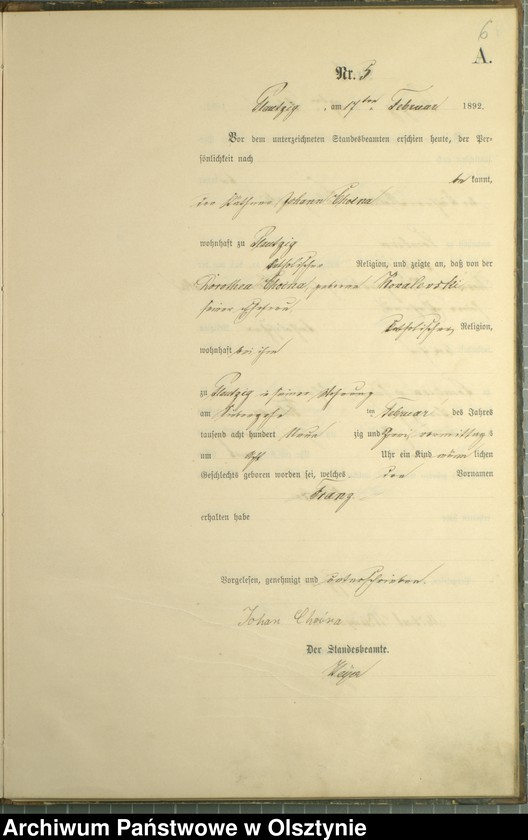 6
A.
Nr. 5
am 17ten Februar 1892.
Vor dem unterzeichneten Standesbeamten erschien heute, der Per-
sönlichkeit nach
be kannt,
der Käthner Johann Choina
wohnhaft zu
katholischer Religion, und zeigte an, daß von der
Dorothea Choina, geborene Kowalewski
seiner Ehefrau
katholischer Religion,
wohnhaft bei ihm
zu in seiner Wohnung
am ten Februar des Jahres
tausend acht hundert neun zig und zwei, vormittag s
um acht Uhr ein Kind männ lichen
Geschlechts geboren worden sei, welches den Vornamen
Franz
erhalten habe
Vorgelesen, genehmigt und unterschrieben.
Johan Choina
Der Standesbeamte.
Archiwum Państwowe w Olsztynie